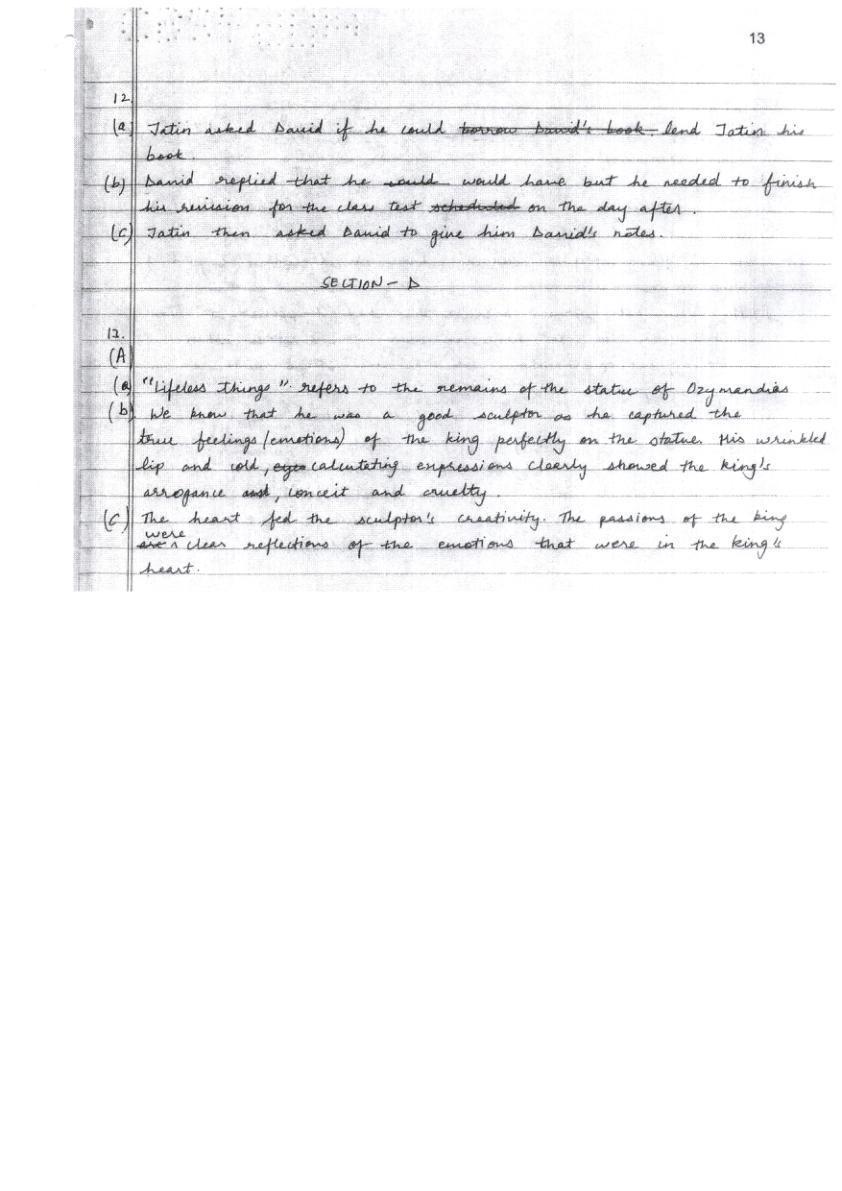 13
12.
(a) Jatin asked David if he could borrow David's book. lend Jatin his
book.
(b) David replied that he could would have but he needed to finish
his revision for the class test scheduled on the day after.
(c) Jatin then asked David to give him David's notes.
SECTION - D
13.
(A
(a) "Lifeless things" refers to the remains of the statue of Ozymandias
(b) We know that he was a good sculptor as he captured the
true feelings/emotions) of the king perfectly on the statue. His wrinkled
lip and cold, eyes calculating expressions clearly showed the king's
arrogance and, conceit and cruelty.
(c) The heart fed the sculptor's creativity. The passions of the king
were
are clear reflections of the emotions that were in the king's
heart.